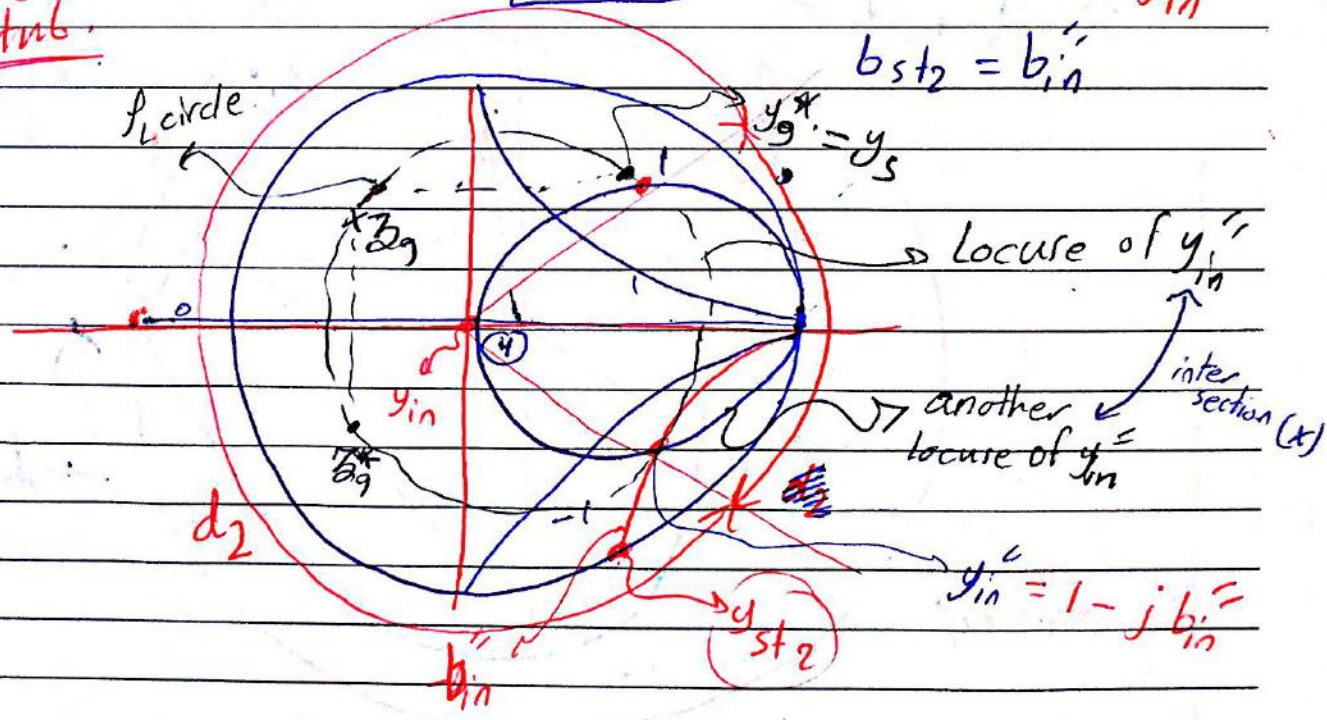 b st2 = b in″
ρL circle
yg* = ys
1
Locuse of y in″
zg
0
4
y in
inter
section (x)
another
locuse of y in″
zg*
-1
d2
y in″ = 1 - j b in″
y st2
b in″